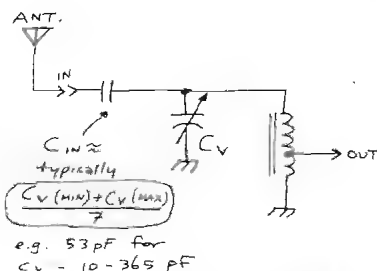 ANT.
IN
C IN ≈
typically
C V (MIN) + C V (MAX)
7
e.g. 53 pF for
C V - 10 - 365 pF
C V
OUT